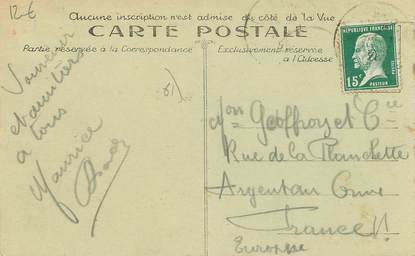 12-6
Aucune inscription n'est admise du côté de la Vue
CARTE POSTALE
Partie réservée à la Correspondance
Exclusivement réservé
à l'Adresse
REPUBLIQUE FRANÇAISE
15c
PASTEUR
POSTES
Souvenir
et amitiés
a tous
Maurice
Mon Geoffroy et Cie
Rue de la Planchette
Argentan Orne
France